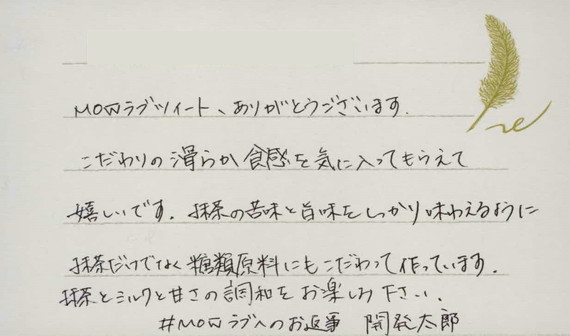 MOWラブツイート、ありがとうございます.
こだわりの滑らか食感を気に入ってもらえて
嬉しいです. 抹茶の苦味と旨味をしっかり味わえるように
抹茶だけでなく糖類原料にもこだわって作っています.
抹茶とミルクと甘さの調和をお楽しみ下さい.
#MOWラブへのお返事 開発太郎